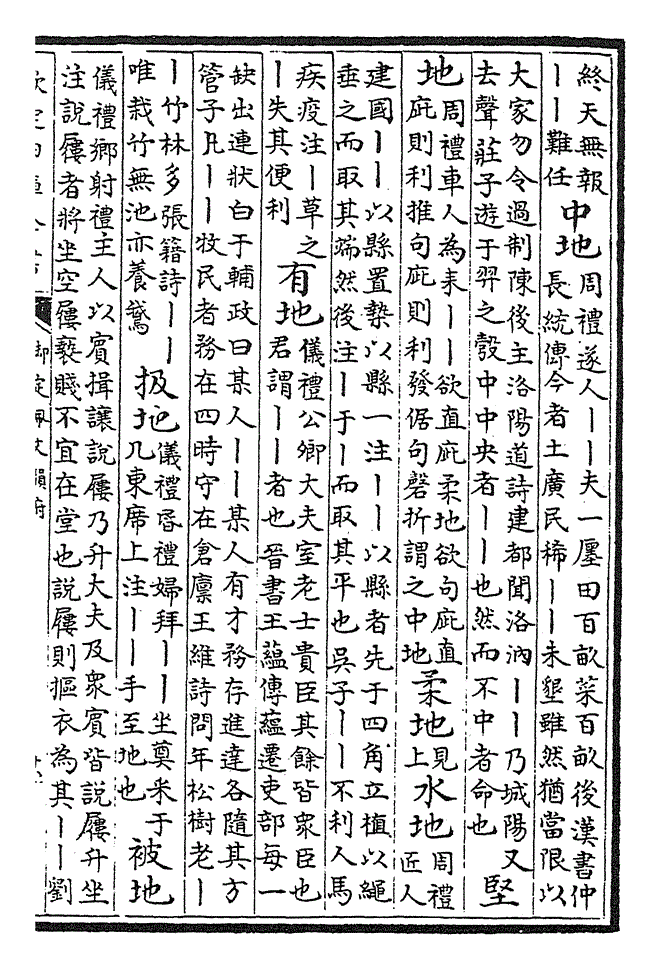 終天無報
丨丨難任
中地
周禮遂人丨丨夫一廛田百畝萊百畝後漢書仲
長統傳今者土廣民稀丨丨未墾雖然猶當限以
大家勿令過制陳後主洛陽道詩建都聞洛汭丨丨乃城陽又
去聲莊子遊于羿之彀中中央者丨丨也然而不中者命也
堅
地
周禮車人為耒丨丨欲直庛柔地欲句庛直
庛則利推句庛則利發倨句磬折謂之中地
柔地
見
上
水地
周禮
匠人
建國丨丨以縣置槷以縣一注丨丨以縣者先于四角立植以繩
垂之而取其端然後注丨于丨而取其平也吳子丨丨不利人馬
疾疫注丨草之
丨失其便利
有地
儀禮公卿大夫室老士貴臣其餘皆衆臣也
君謂丨丨者也晉書王蘊傳蘊遷吏部每一
缺出連狀白于輔政曰某人丨丨某人有才務存進達各隨其方
管子凡丨丨牧民者務在四時守在倉廪王維詩問年松樹老丨
丨竹林多張籍詩丨丨
唯栽竹無池亦養鵞
扱地
儀禮昏禮婦拜丨丨坐奠釆于
几東席上注丨丨手至地也
被地
儀禮鄉射禮主人以賓揖讓說屨乃升大夫及衆賓皆說屨升坐
注說屨者將坐空屨褻賤不宜在堂也說屨則摳衣為其丨丨劉
欽定四庫全書
御定佩文韻府